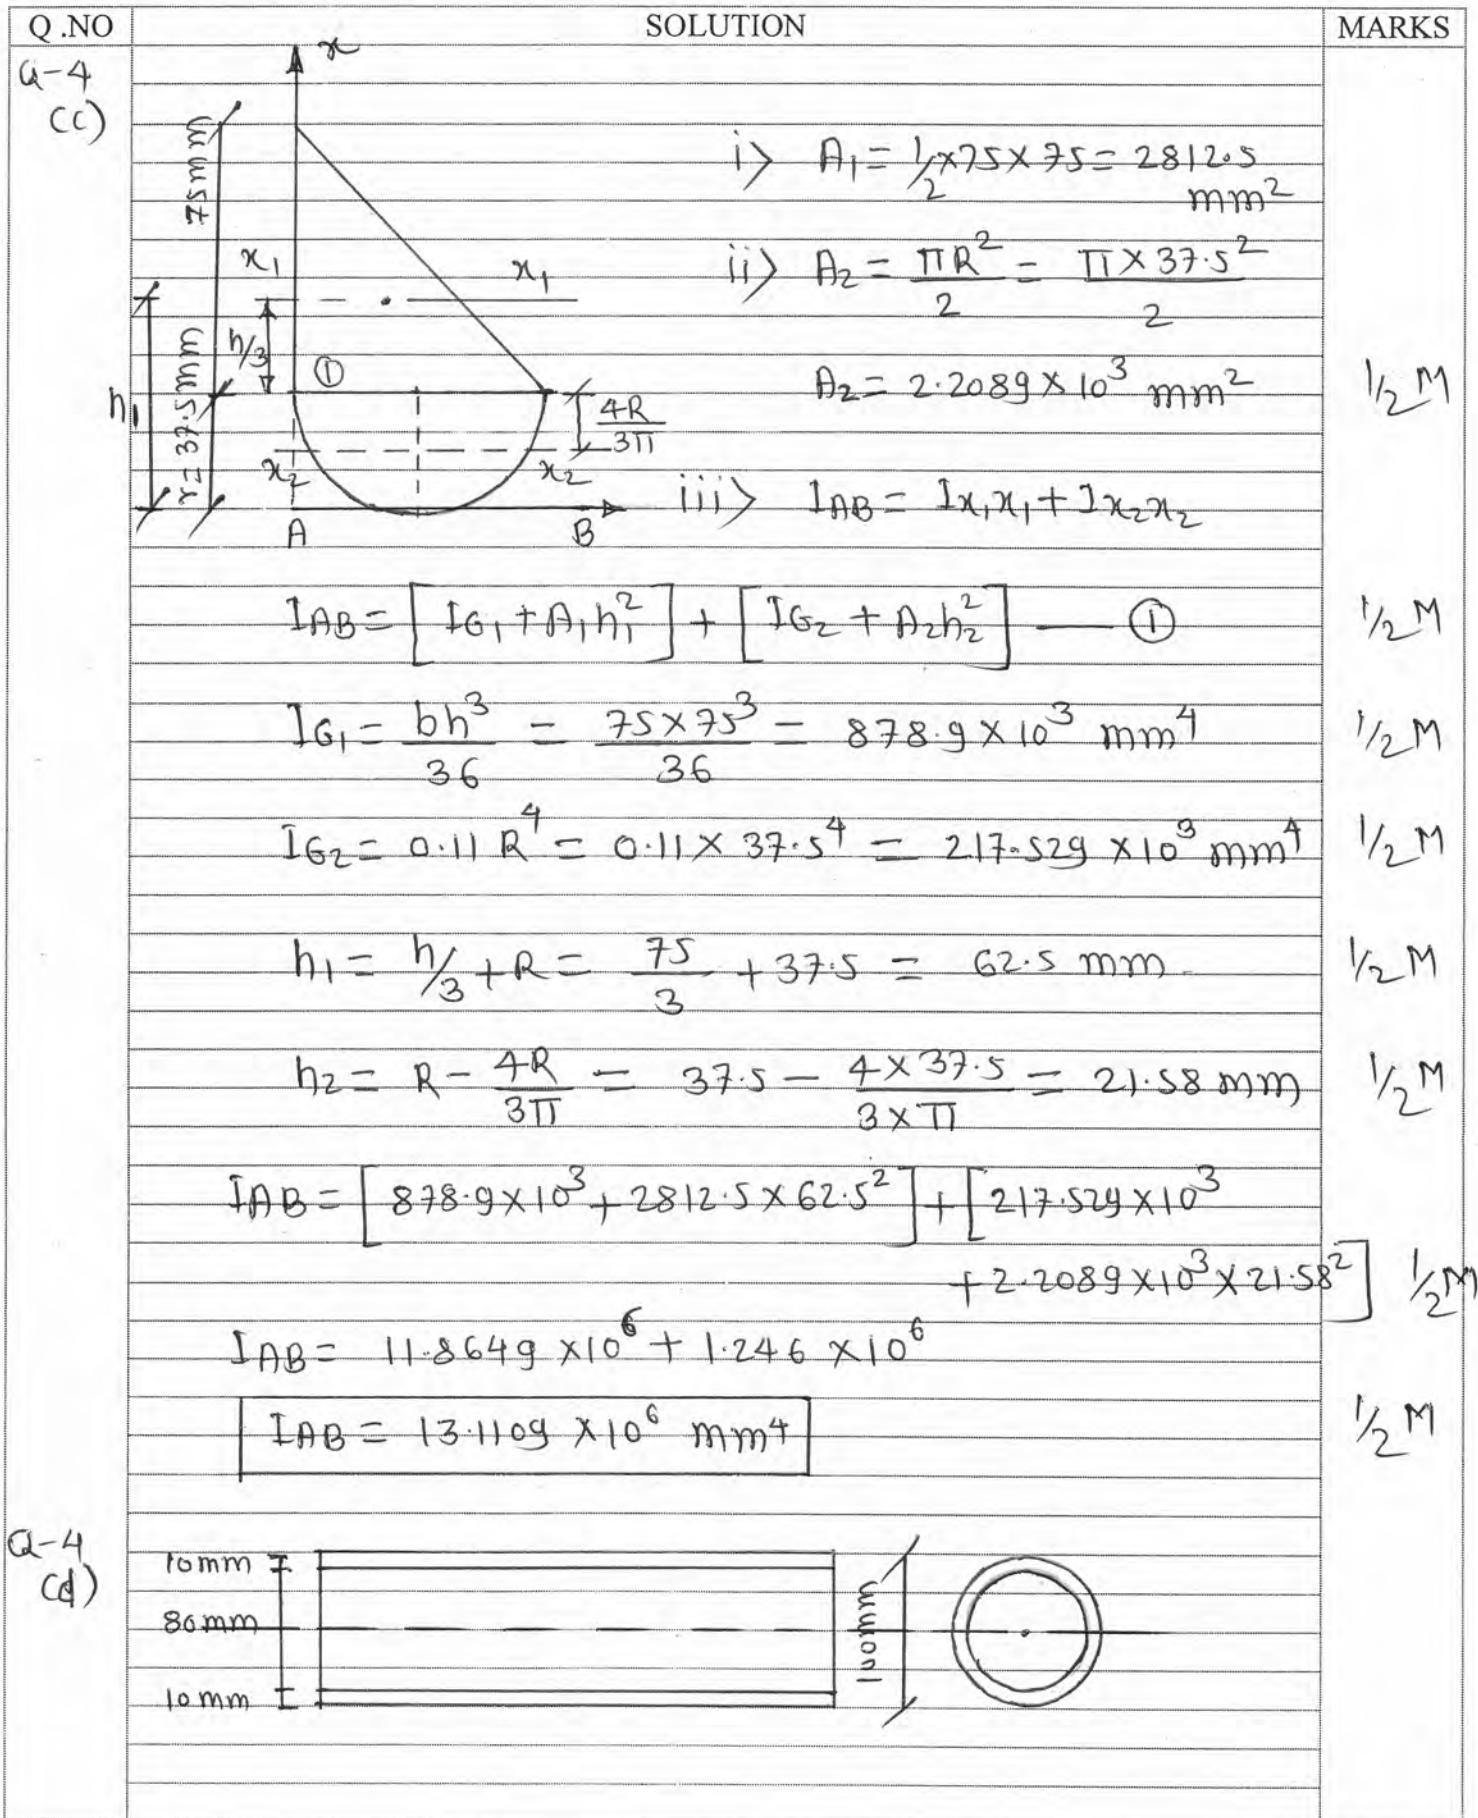 Q.NO SOLUTION MARKS
Q-4
(c)
x
75mm
x₁ x₁
h/3
①
h₁
r = 37.5mm
4R/3π
x₂ x₂
A B
i> A₁ = 1/2 × 75 × 75 = 2812.5
mm²
ii> A₂ = πR²/2 = π × 37.5²/2
A₂ = 2.2089 × 10³ mm² 1/2 M
iii> IAB = Ix₁x₁ + Ix₂x₂
IAB = [IG₁ + A₁h₁²] + [IG₂ + A₂h₂²] — ① 1/2 M
IG₁ = bh³/36 = 75 × 75³/36 = 878.9 × 10³ mm⁴ 1/2 M
IG₂ = 0.11 R⁴ = 0.11 × 37.5⁴ = 217.529 × 10³ mm⁴ 1/2 M
h₁ = h/3 + R = 75/3 + 37.5 = 62.5 mm. 1/2 M
h₂ = R - 4R/3π = 37.5 - 4 × 37.5/3 × π = 21.58 mm 1/2 M
IAB = [878.9 × 10³ + 2812.5 × 62.5²] + [217.529 × 10³
+ 2.2089 × 10³ × 21.58²] 1/2 M
IAB = 11.8649 × 10⁶ + 1.246 × 10⁶
IAB = 13.1109 × 10⁶ mm⁴ 1/2 M
Q-4
(d)
10mm
80mm
10mm
100mm